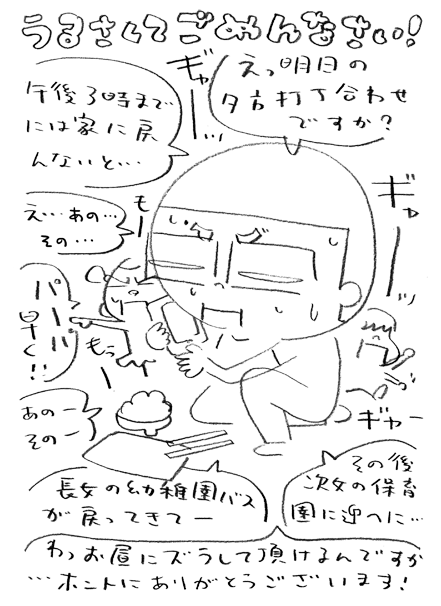 うるさくてごめんなさい!
えっ明日の
夕方打丁合わせ
ですか?
ギャーッ
午後3時まで
には家に戻
んないと…
え…あの…
その…
もー
ギャーッ
パパー
早く!!
もぅー
ギャー
あのー
そのー
長女の幼稚園バス
が戻ってきてー
その後
次女の保育
園に迎へに…
わっお昼にズラして頂けるんですか
…ホントにありがとうございます!